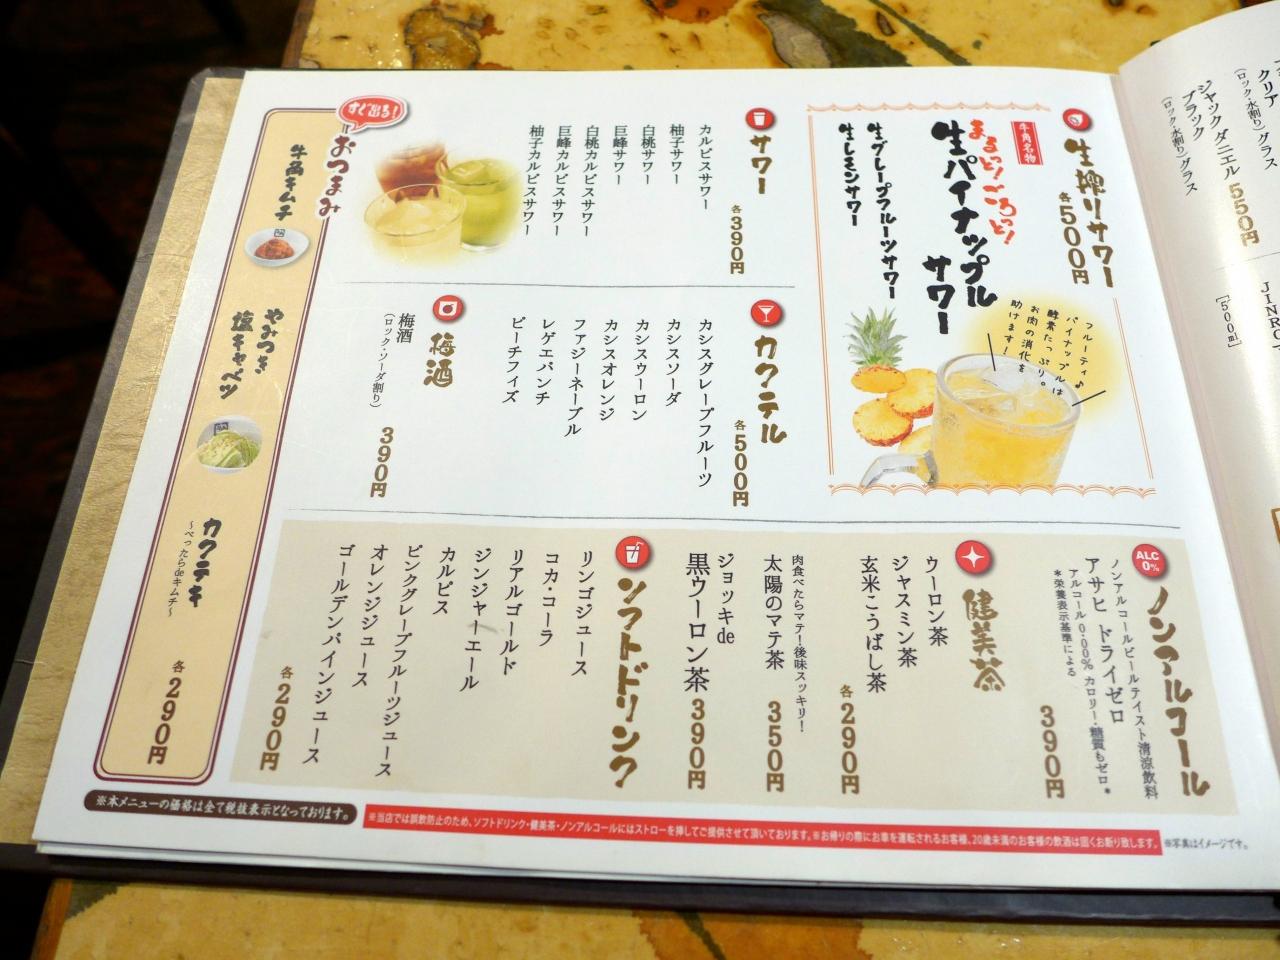 クリア
(ロック・水割り)グラス
ジャックダニエル 550円
ブラック
(ロック・水割り)グラス
[500ml]
生搾りサワー
各500円
牛角名物
まるっと!ごろっと!
生パイナップル
サワー
生グレープフルーツサワー
生レモンサワー
フルーティ♪
パイナップルは
酵素たっぷり。
お肉の消化を
助けます!
サワー
各390円
カルピスサワー
柚子サワー
白桃サワー
巨峰サワー
白桃カルピスサワー
巨峰カルピスサワー
柚子カルピスサワー
カクテル
各500円
カシスグレープフルーツ
カシスソーダ
カシスウーロン
カシスオレンジ
ファジーネーブル
レゲエパンチ
ピーチフィズ
梅酒
梅酒
(ロック・ソーダ割り)
390円
ALC 0%
ノンアルコール
ノンアルコールビールテイスト清涼飲料
アサヒ ドライゼロ
アルコール0.00% カロリー・糖質もゼロ*
*栄養表示基準による
390円
健美茶
ウーロン茶
ジャスミン茶
玄米こうばし茶
各290円
肉食べたらマテ!後味スッキリ!
太陽のマテ茶 350円
ジョッキde
黒ウーロン茶 390円
ソフトドリンク
リンゴジュース
コカ・コーラ
リアルゴールド
ジンジャーエール
カルピス
ピンクグレープフルーツジュース
オレンジジュース
ゴールデンパインジュース
各290円
すぐ出る!
おつまみ
牛角キムチ
やみつき
塩キャベツ
カクテキ
〜べったらdeキムチ〜
各290円
※本メニューの価格は全て税抜表示となっております。
※当店では誤飲防止のため、ソフトドリンク・健美茶・ノンアルコールにはストローを挿してご提供させて頂いております。※お帰りの際にお車を運転されるお客様、20歳未満のお客様の飲酒は固くお断り致します。
※写真はイメージです。